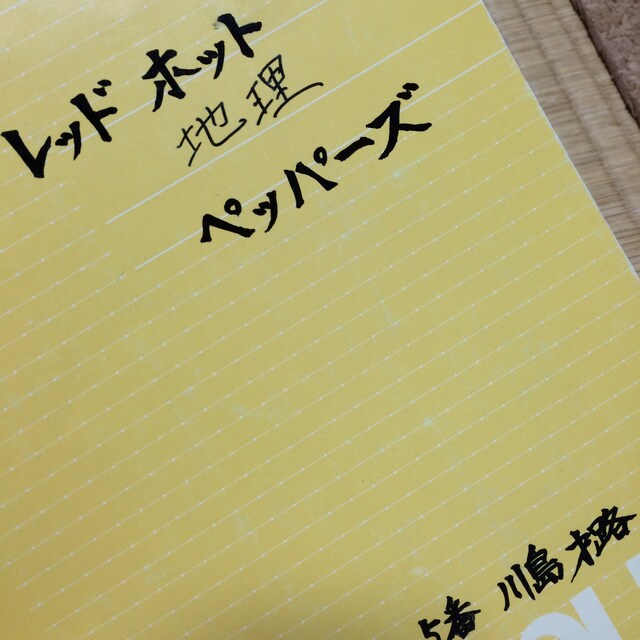 レッド ホット
地理
ペッパーズ
5番 川島